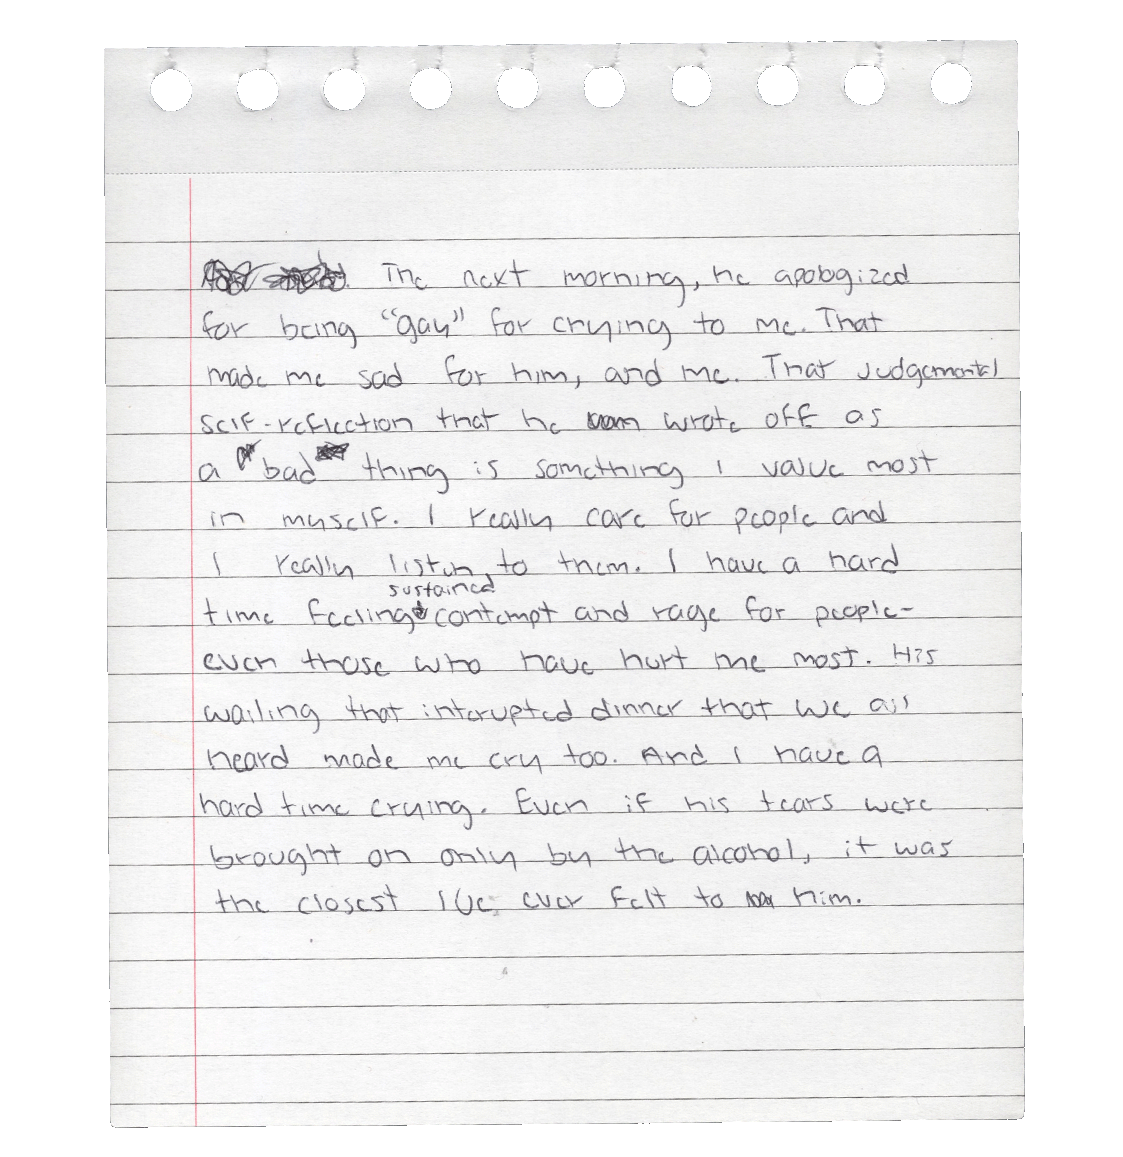 The next morning, he apologized
for being "gay" for crying to me. That
made me sad for him, and me. That judgemental
self-reflection that he wrote off as
a bad thing is something I value most
in myself. I really care for people and
I really listen to them. I have a hard
sustained
time feeling contempt and rage for people-
even those who have hurt me most. His
wailing that interupted dinner that we all
heard made me cry too. And I have a
hard time crying. Even if his tears were
brought on only by the alcohol, it was
the closest I've ever felt to him.